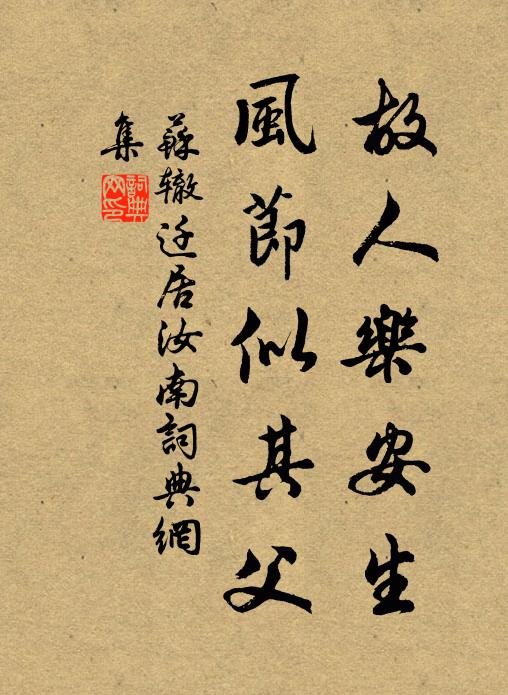 故人樂安生
風節似其父
蘇辙迁居汝南詞典網
集
詞典网印